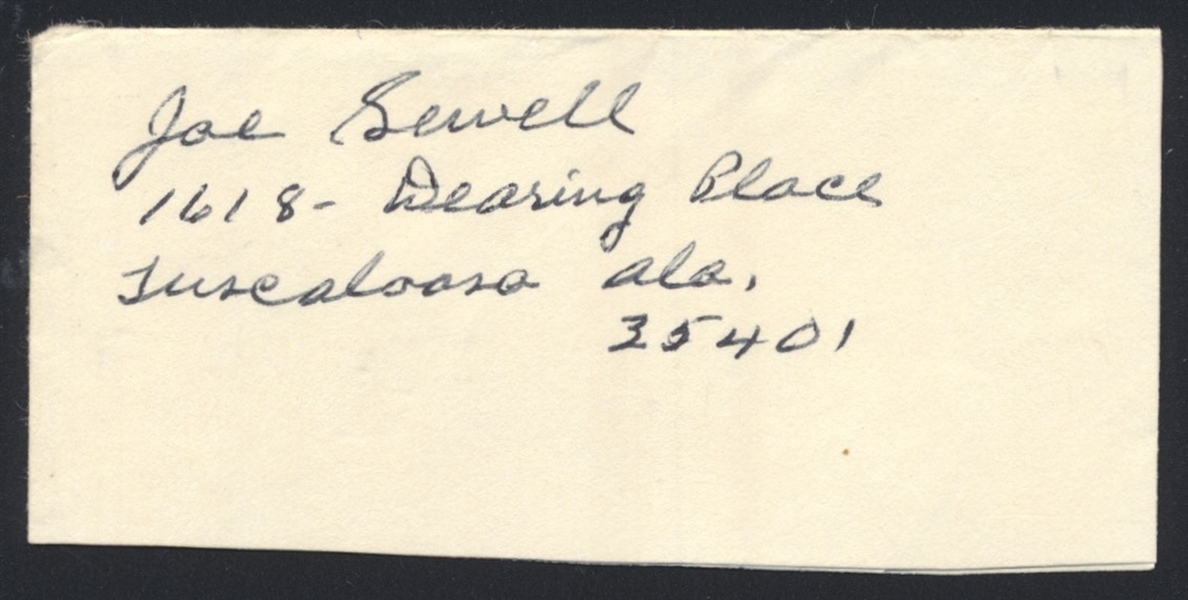 Joe Sewell
1618- Dearing Place
Tuscaloosa Ala.
35401